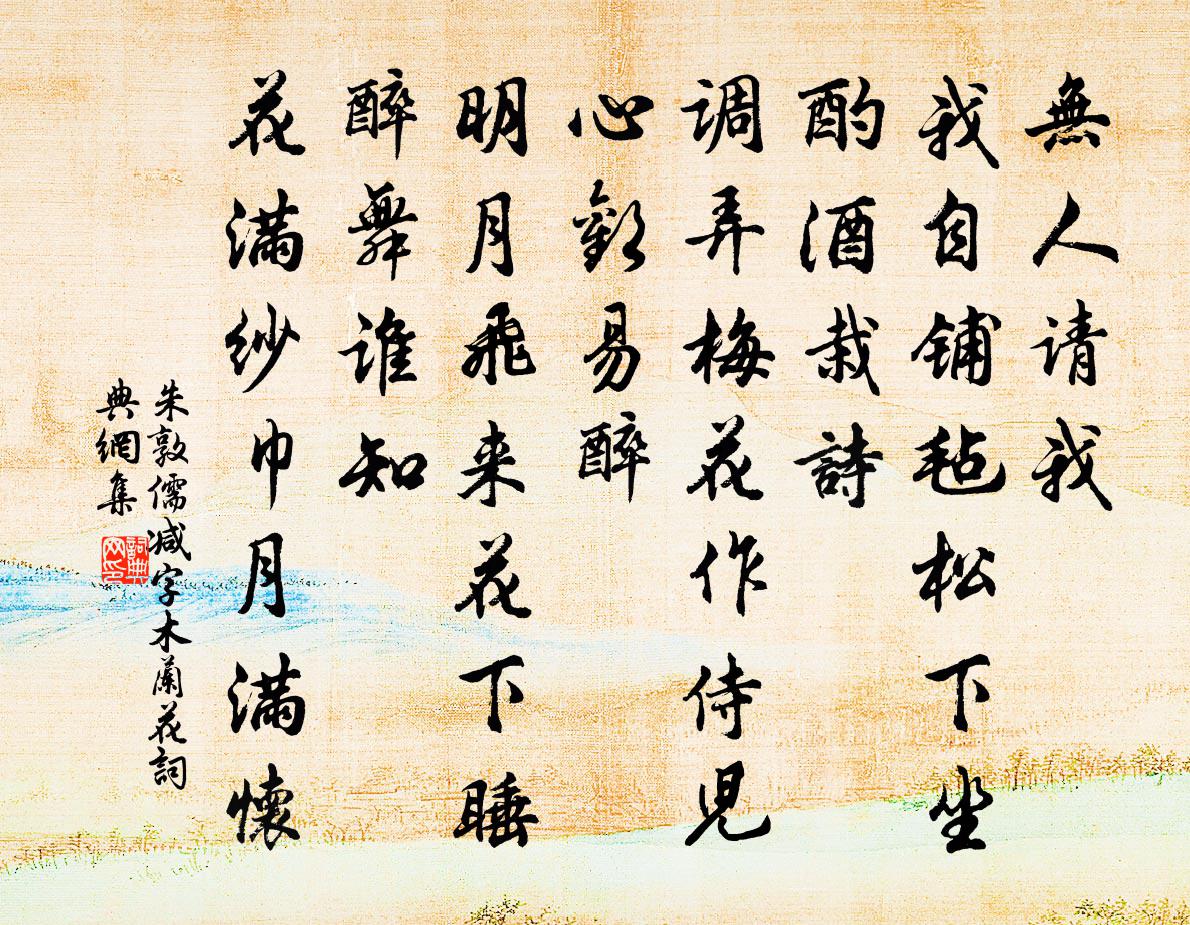 無人請我
我自鋪毡松下坐
酌酒栽詩
調弄梅花作侍児
心歡易醉
明月飛来花下睡
醉舞誰知
花滿紗巾月滿懷
朱敦儒减字木蘭花詞
典網集
詞典網印